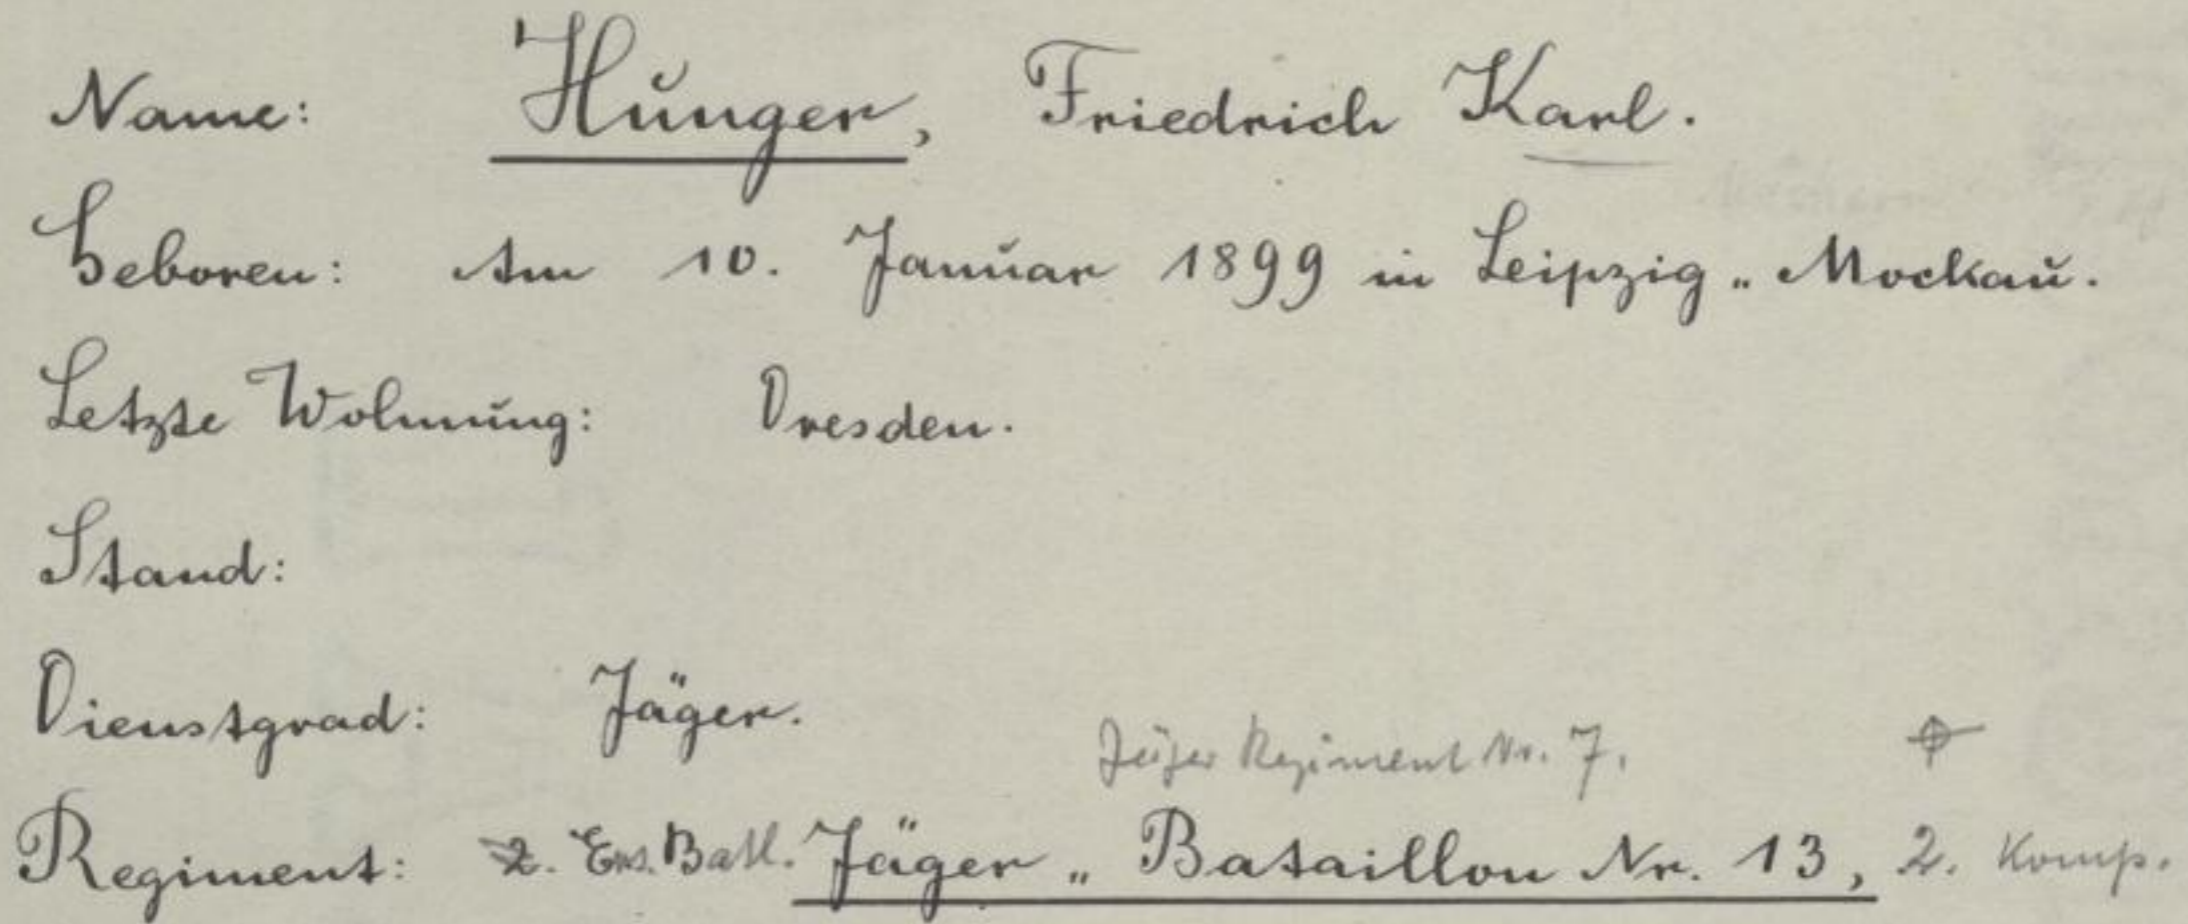 Name: Hunger, Friedrich Karl.
Geboren: Am 10. Januar 1899 in Leipzig „ Mockau.
Letzte Wohnung: Dresden.
Stand:
Dienstgrad: Jäger.
Jäger Regiment Nr. 7.
Regiment: 2. Ers. Batl. Jäger „ Bataillon Nr. 13, 2. Komp.